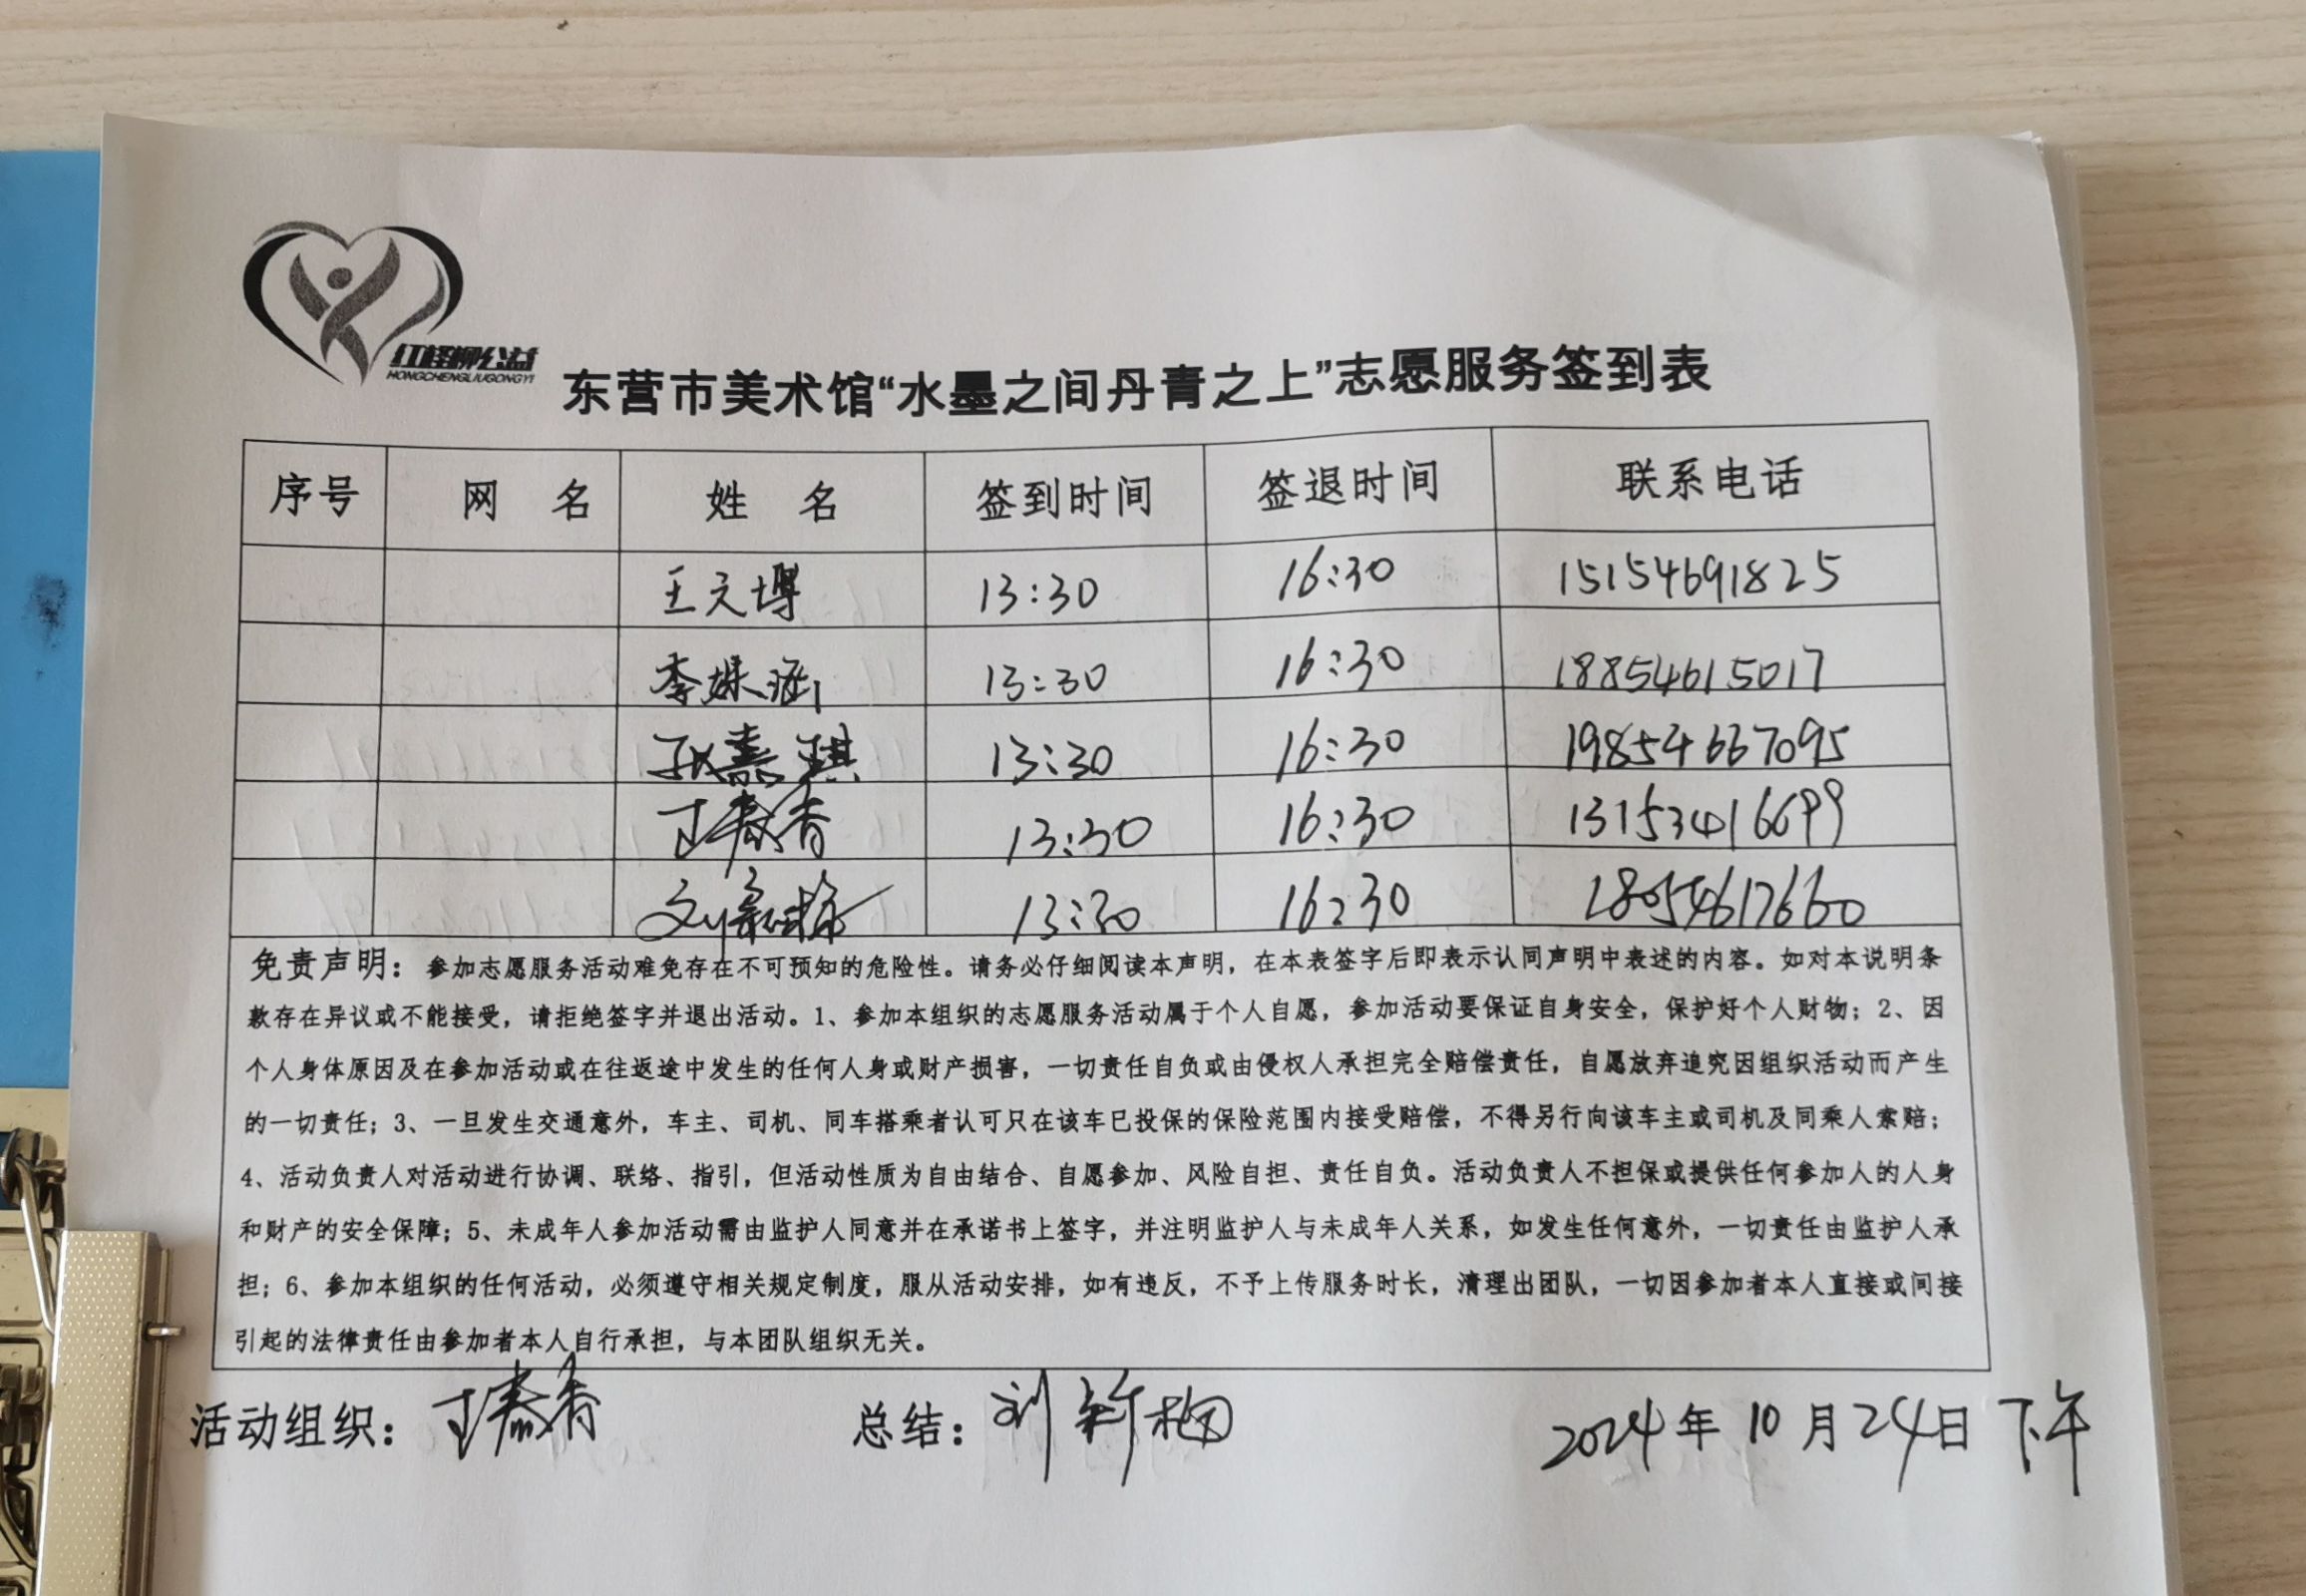 红柽柳公益
HONGCHENGLIUGONGYI
东营市美术馆“水墨之间丹青之上”志愿服务签到表
序号 网 名 姓 名 签到时间 签退时间 联系电话
王文博 13:30 16:30 15154691825
李姝涵 13:30 16:30 18854615017
孙嘉琪 13:30 16:30 19854667095
丁春香 13:30 16:30 13153416699
刘新梅 13:30 16:30 18054617660
免责声明：参加志愿服务活动难免存在不可预知的危险性。请务必仔细阅读本声明，在本表签字后即表示认同声明中表述的内容。如对本说明条
款存在异议或不能接受，请拒绝签字并退出活动。1、参加本组织的志愿服务活动属于个人自愿，参加活动要保证自身安全，保护好个人财物；2、因
个人身体原因及在参加活动或在往返途中发生的任何人身或财产损害，一切责任自负或由侵权人承担完全赔偿责任，自愿放弃追究因组织活动而产生
的一切责任；3、一旦发生交通意外，车主、司机、同车搭乘者认可只在该车已投保的保险范围内接受赔偿，不得另行向该车主或司机及同乘人索赔；
4、活动负责人对活动进行协调、联络、指引，但活动性质为自由结合、自愿参加、风险自担、责任自负。活动负责人不担保或提供任何参加人的人身
和财产的安全保障；5、未成年人参加活动需由监护人同意并在承诺书上签字，并注明监护人与未成年人关系，如发生任何意外，一切责任由监护人承
担；6、参加本组织的任何活动，必须遵守相关规定制度，服从活动安排，如有违反，不予上传服务时长，清理出团队，一切因参加者本人直接或间接
引起的法律责任由参加者本人自行承担，与本团队组织无关。
活动组织：丁春香 总结：刘新梅 2024年10月24日下午